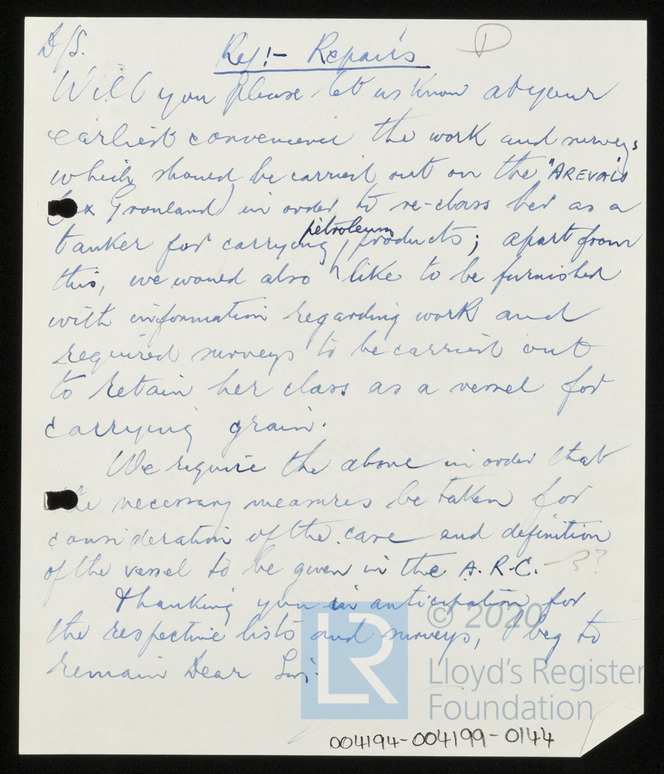 D/S.
Ref:- Repairs
Will you please let us know at your
earliest convenience the work and surveys
which should be carried out on the "AREVALO"
(ex Gronland) in order to re-class her as a
tanker for carrying petroleum products; apart from
this, we would also like to be furnished
with information regarding work and
required surveys to be carried out
to retain her class as a vessel for
carrying grain.
We require the above in order that
the necessary measures be taken for
consideration of the case and definition
of the vessel to be given in the A.R.C. ??
Thanking you in anticipation for
the respective lists and surveys, I beg to
remain Dear Sir:-
LR
© 2020
Lloyd's Register
Foundation
004194-004199-0144